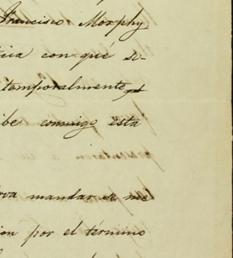 Francisco Morphy
tica con qué so-
temporalmente, y
ibe conmigo esta
rva mandar se me
ion por el término